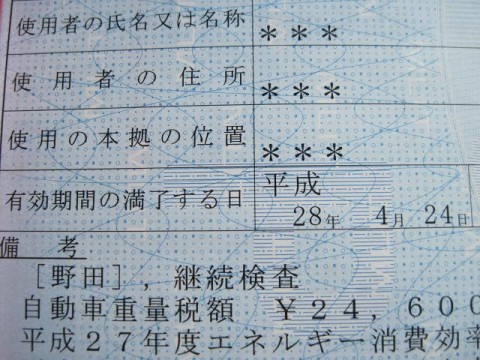 使用者の氏名又は名称 ＊＊＊
使用者の住所 ＊＊＊
使用の本拠の位置 ＊＊＊
有効期間の満了する日 平成
28年 4月 24日
備考
［野田］，継続検査
自動車重量税額 ￥２４，６００
平成２７年度エネルギー消費効率